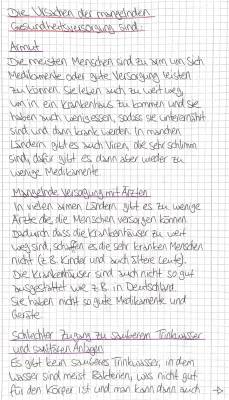 Die Ursachen der mangelnden
Gesundheitsversorgung sind:
Armut
Die meisten Menschen sind zu arm um sich
Medikamente oder gute Versorgung leisten
zu können. Sie leben auch zu weit weg,
um in ein Krankenhaus zu kommen und sie
haben auch wenig essen, sodass sie unterernährt
sind und dann krank werden. In manchen
Ländern gibt es auch Viren, die sehr schlimm
sind, dafür gibt es dann aber wieder zu
wenige Medikamente.
Mangelnde Versorgung mit Ärzten
In vielen armen Ländern gibt es zu wenige
Ärzte die die Menschen versorgen können.
Dadurch dass die Krankenhäuser zu weit
weg sind, schaffen es die sehr kranken Menschen
nicht (z.B. Kinder und auch ältere Leute).
Die Krankenhäuser sind auch nicht so gut
ausgestattet wie z.B. in Deutschland.
Sie haben nicht so gute Medikamente und
Geräte.
Schlechter Zugang zu sauberem Trinkwasser
und sanitären Anlagen
Es gibt kein sauberes Trinkwasser, in dem
Wasser sind meist Bakterien, was nicht gut
für den Körper ist und man kann dann auch →